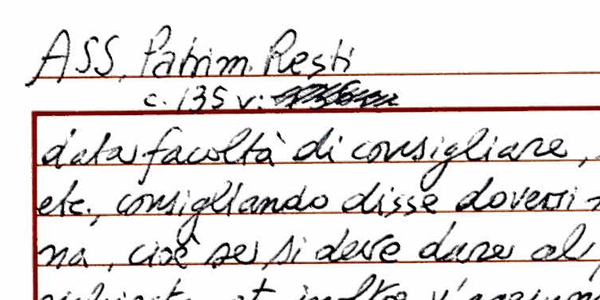 ASS, Patrim. Resti
c. 135 v:
data facoltà di consigliare,
etc., consigliando disse doversi
na, cioè se si deve dare al,
et inoltre